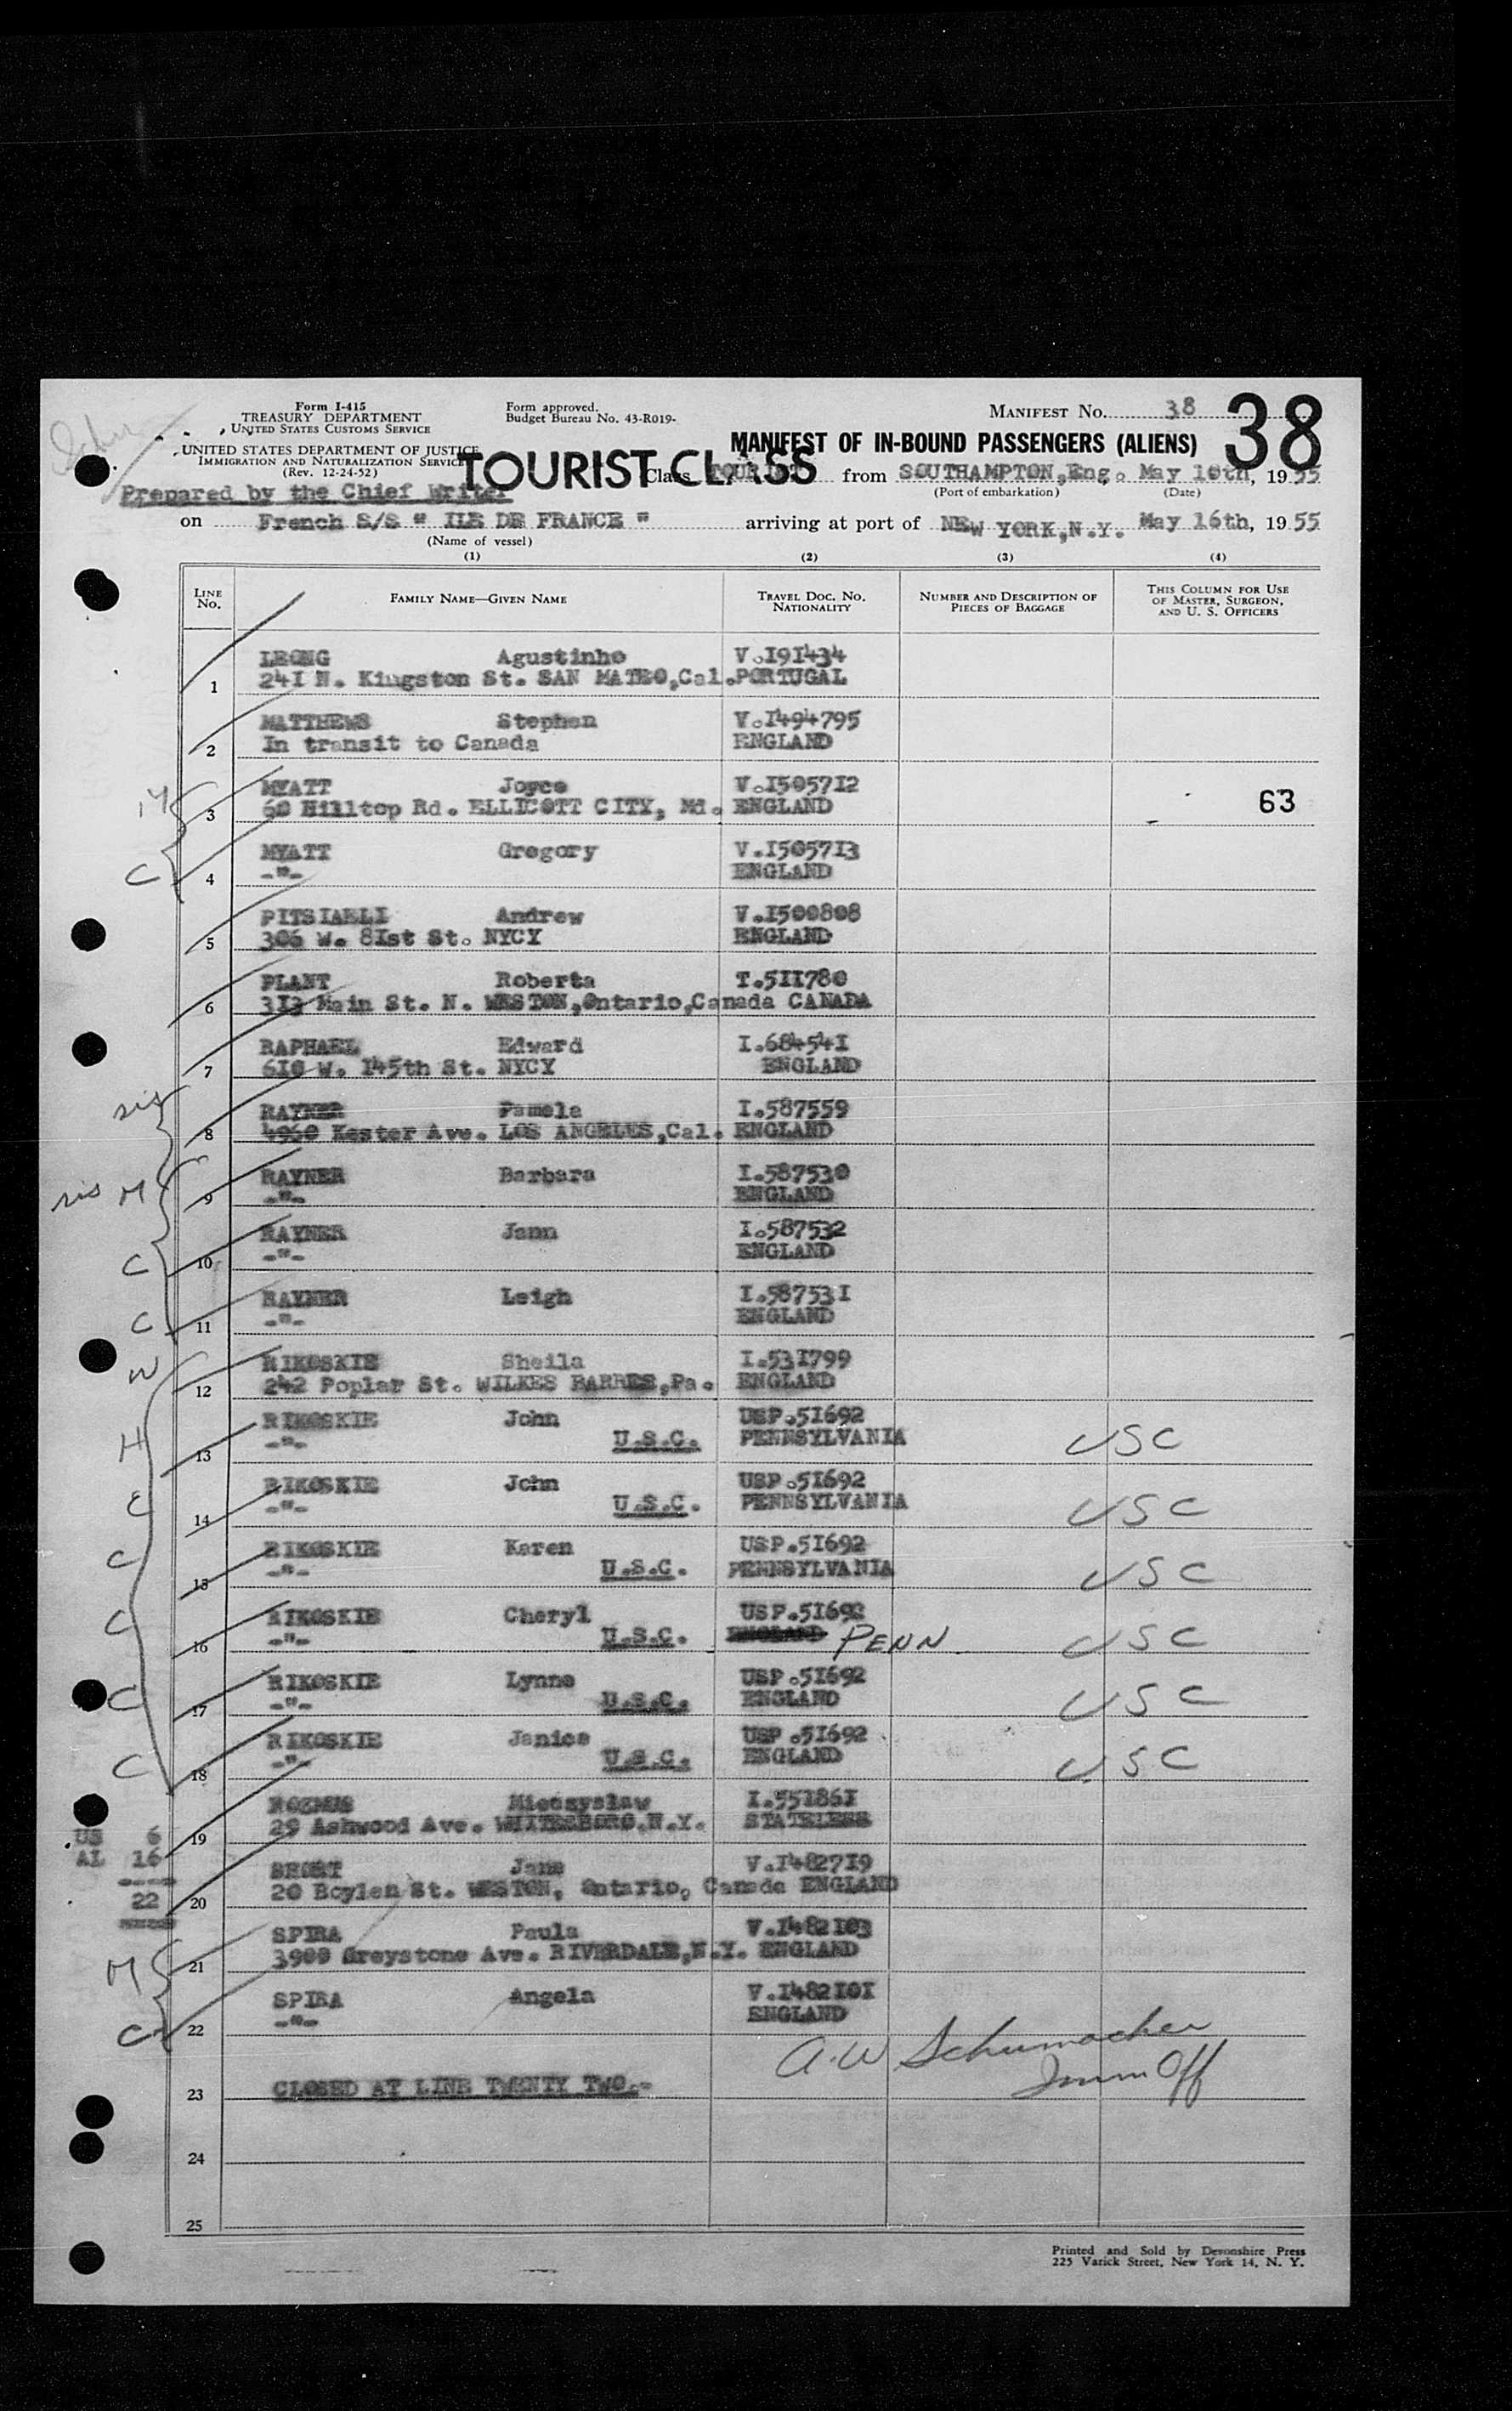 Form I-415
TREASURY DEPARTMENT
UNITED STATES CUSTOMS SERVICE
Form approved.
Budget Bureau No. 43-R019-
MANIFEST NO. 38
38
UNITED STATES DEPARTMENT OF JUSTICE
IMMIGRATION AND NATURALIZATION SERVICE
(Rev. 12-24-52)
MANIFEST OF IN-BOUND PASSENGERS (ALIENS)
TOURIST CLASS
Class TOURIST from SOUTHAMPTON,Eng. May 10th, 1955
(Port of embarkation) (Date)
Prepared by the Chief Writer
on French S/S " ILE DE FRANCE " arriving at port of NEW YORK,N.Y. May 16th, 1955
(Name of vessel)
(1) (2) (3) (4)
LINE No. FAMILY NAME—GIVEN NAME TRAVEL DOC. NO. NATIONALITY NUMBER AND DESCRIPTION OF PIECES OF BAGGAGE THIS COLUMN FOR USE OF MASTER, SURGEON, AND U. S. OFFICERS
LEONG Agustinho V.I9I434
1 24I N. Kingston St. SAN MATEO,Cal. PORTUGAL
MATTHEWS Stephen V.I494795
2 In transit to Canada ENGLAND
M MYATT Joyce V.I505712
3 60 Hilltop Rd. ELLICOTT CITY, Md. ENGLAND 63
MYATT Gregory V.I505713
C 4 -"- ENGLAND
PITSIAELI Andrew V.I500808
5 306 W. 8Ist St. NYCY ENGLAND
PLANT Roberta T.5II780
6 3I3 Main St. N. WESTON,Ontario,Canada CANADA
RAPHAEL Edward I.68454I
7 610 W. I45th St. NYCY ENGLAND
sis RAYNER Pamela I.587559
8 4960 Kester Ave. LOS ANGELES,Cal. ENGLAND
sis M RAYNER Barbara I.587530
9 -"- ENGLAND
RAYNER Jann I.587532
C 10 -"- ENGLAND
RAYNER Leigh I.58753I
C 11 -"- ENGLAND
W RIKOSKIE Sheila I.53I799
12 242 Poplar St. WILKES BARRES,Pa. ENGLAND
H RIKOSKIE John USP.5I692
13 -"- U.S.C. PENNSYLVANIA USC
C RIKOSKIE John USP.5I692
14 -"- U.S.C. PENNSYLVANIA USC
C RIKOSKIE Karen USP.5I692
15 -"- U.S.C. PENNSYLVANIA USC
C RIKOSKIE Cheryl USP.5I692
16 -"- U.S.C. PENN USC
RIKOSKIE Lynne USP.5I692
C 17 -"- U.S.C. ENGLAND USC
RIKOSKIE Janice USP.5I692
C 18 -"- U.S.C. ENGLAND USC
ROZMUS Mieczyslaw I.55I86I
US 6 19 29 Ashwood Ave. WHITESBORO.N.Y. STATELESS
AL 16
SHORT Jane V.I4827I9
22 20 20 Boylen St. WESTON, Ontario, Canada ENGLAND
SPIRA Paula V.I482I03
M 21 3900 Greystone Ave. RIVERDALE,N.Y. ENGLAND
SPIRA Angela V.I482I0I
C 22 -"- ENGLAND
A.W Schumacher
Imm Off
23 CLOSED AT LINE TWENTY TWO.-
24
25
Printed and Sold by Devonshire Press
225 Varick Street, New York 14, N. Y.